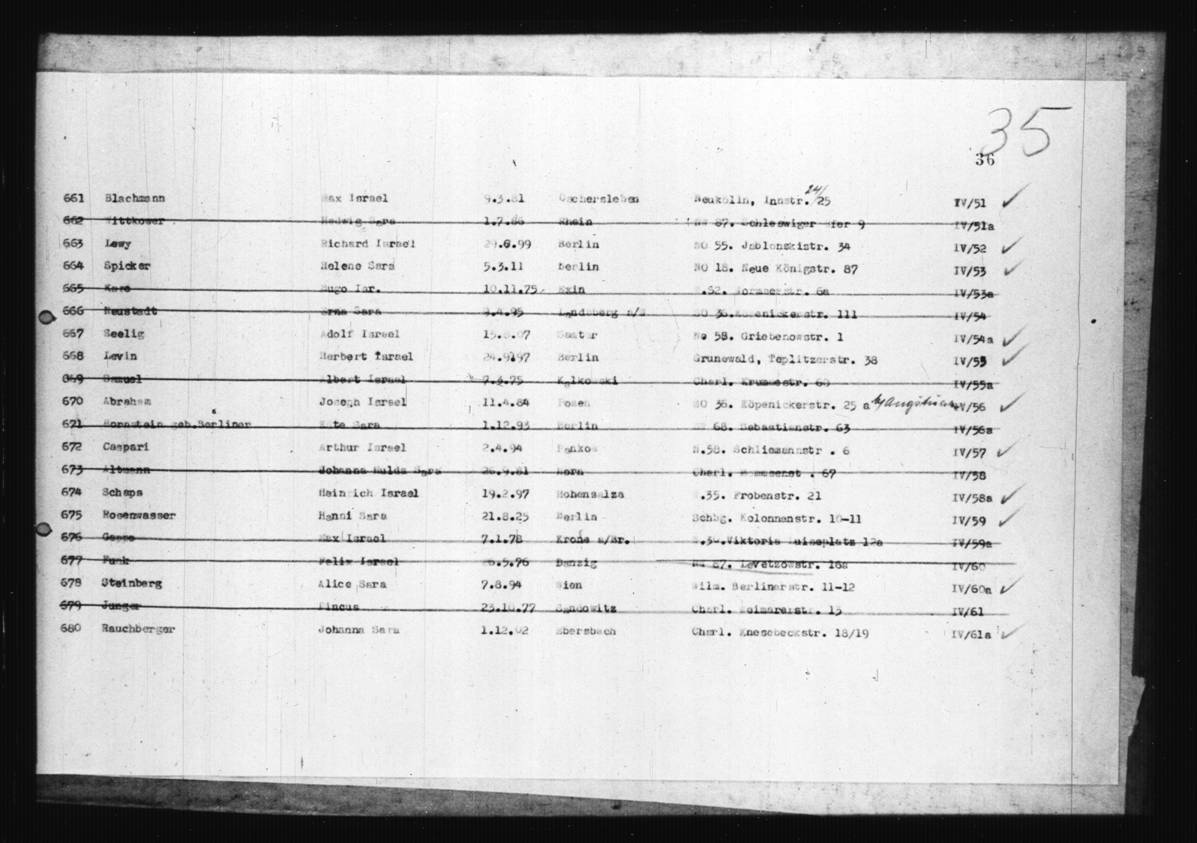 35
36
661 Blachmann Max Israel 9.3.81 Oschersleben Neukölln, Innstr. 24/25 IV/51 ✓
662 Wittkower Hedwig Sara 1.7.86 Rhein NW 87. Schleswiger Ufer 9 IV/51a
663 Lewy Richard Israel 29.6.99 Berlin NO 55. Jablonskistr. 34 IV/52 ✓
664 Spicker Helene Sara 5.3.11 Berlin NO 18. Neue Königstr. 87 IV/53 ✓
665 Hugo Isr. 10.11.75 Exin W.62. 6a IV/53a
666 Neustadt Erna Sara 9.4.95 Landsberg a/W SO 36.Köpenickerstr. 111 IV/54
667 Seelig Adolf Israel 07 No 58. Griebenowstr. 1 IV/54a ✓
668 Levin Herbert Israel 24.9.97 Berlin Grunewald, Teplitzerstr. 38 IV/55 ✓
669 Samuel Albert Israel 7.3.75 Kalkowski Charl. Krummestr. 60 IV/55a
670 Abraham Joseph Israel 11.4.84 Posen SO 36. Köpenickerstr. 25 a IV/56 ✓
671 Bornstein geb.Berliner Kate Sara 1.12.93 Berlin SW 68. Sebastianstr. 63 IV/56a
672 Caspari Arthur Israel 2.4.94 Pankow N.58. Schliemannstr . 6 IV/57 ✓
673 Altmann Johanna Hulda Sara 26.9.81 Horn Charl. . 67 IV/58
674 Schaps Heinrich Israel 19.2.97 Hohensalza W.35. Frobenstr. 21 IV/58a ✓
675 Rosenwasser Hanni Sara 21.8.25 Berlin Schbg. Kolonnenstr. 10-11 IV/59 ✓
676 Max Israel 7.1.78 Krone a/Br. W.30.Viktoria Luiseplatz 12a IV/59a
677 Funk Felix Israel 26.5.76 Danzig NW 87. Levetzowstr. 16a IV/60
678 Steinberg Alice Sara 7.8.94 Wien Wilm. Berlinerstr. 11-12 IV/60a ✓
679 Junger Pincus 23.10.77 Sandowitz Charl. Weimarerstr. 15 IV/61
680 Rauchberger Johanna Sara 1.12.02 Ebersbach Charl. Knesebeckstr. 18/19 IV/61a ✓